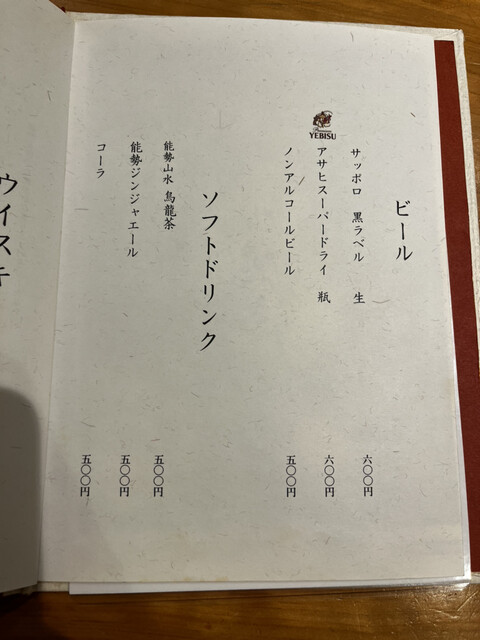 ビール
サッポロ 黒ラベル 生 六〇〇円
Premium
YEBISU
アサヒスーパードライ 瓶 六〇〇円
ノンアルコールビール 五〇〇円
ソフトドリンク
能勢山水 烏龍茶 五〇〇円
能勢ジンジャエール 五〇〇円
コーラ 五〇〇円
ウイスキ